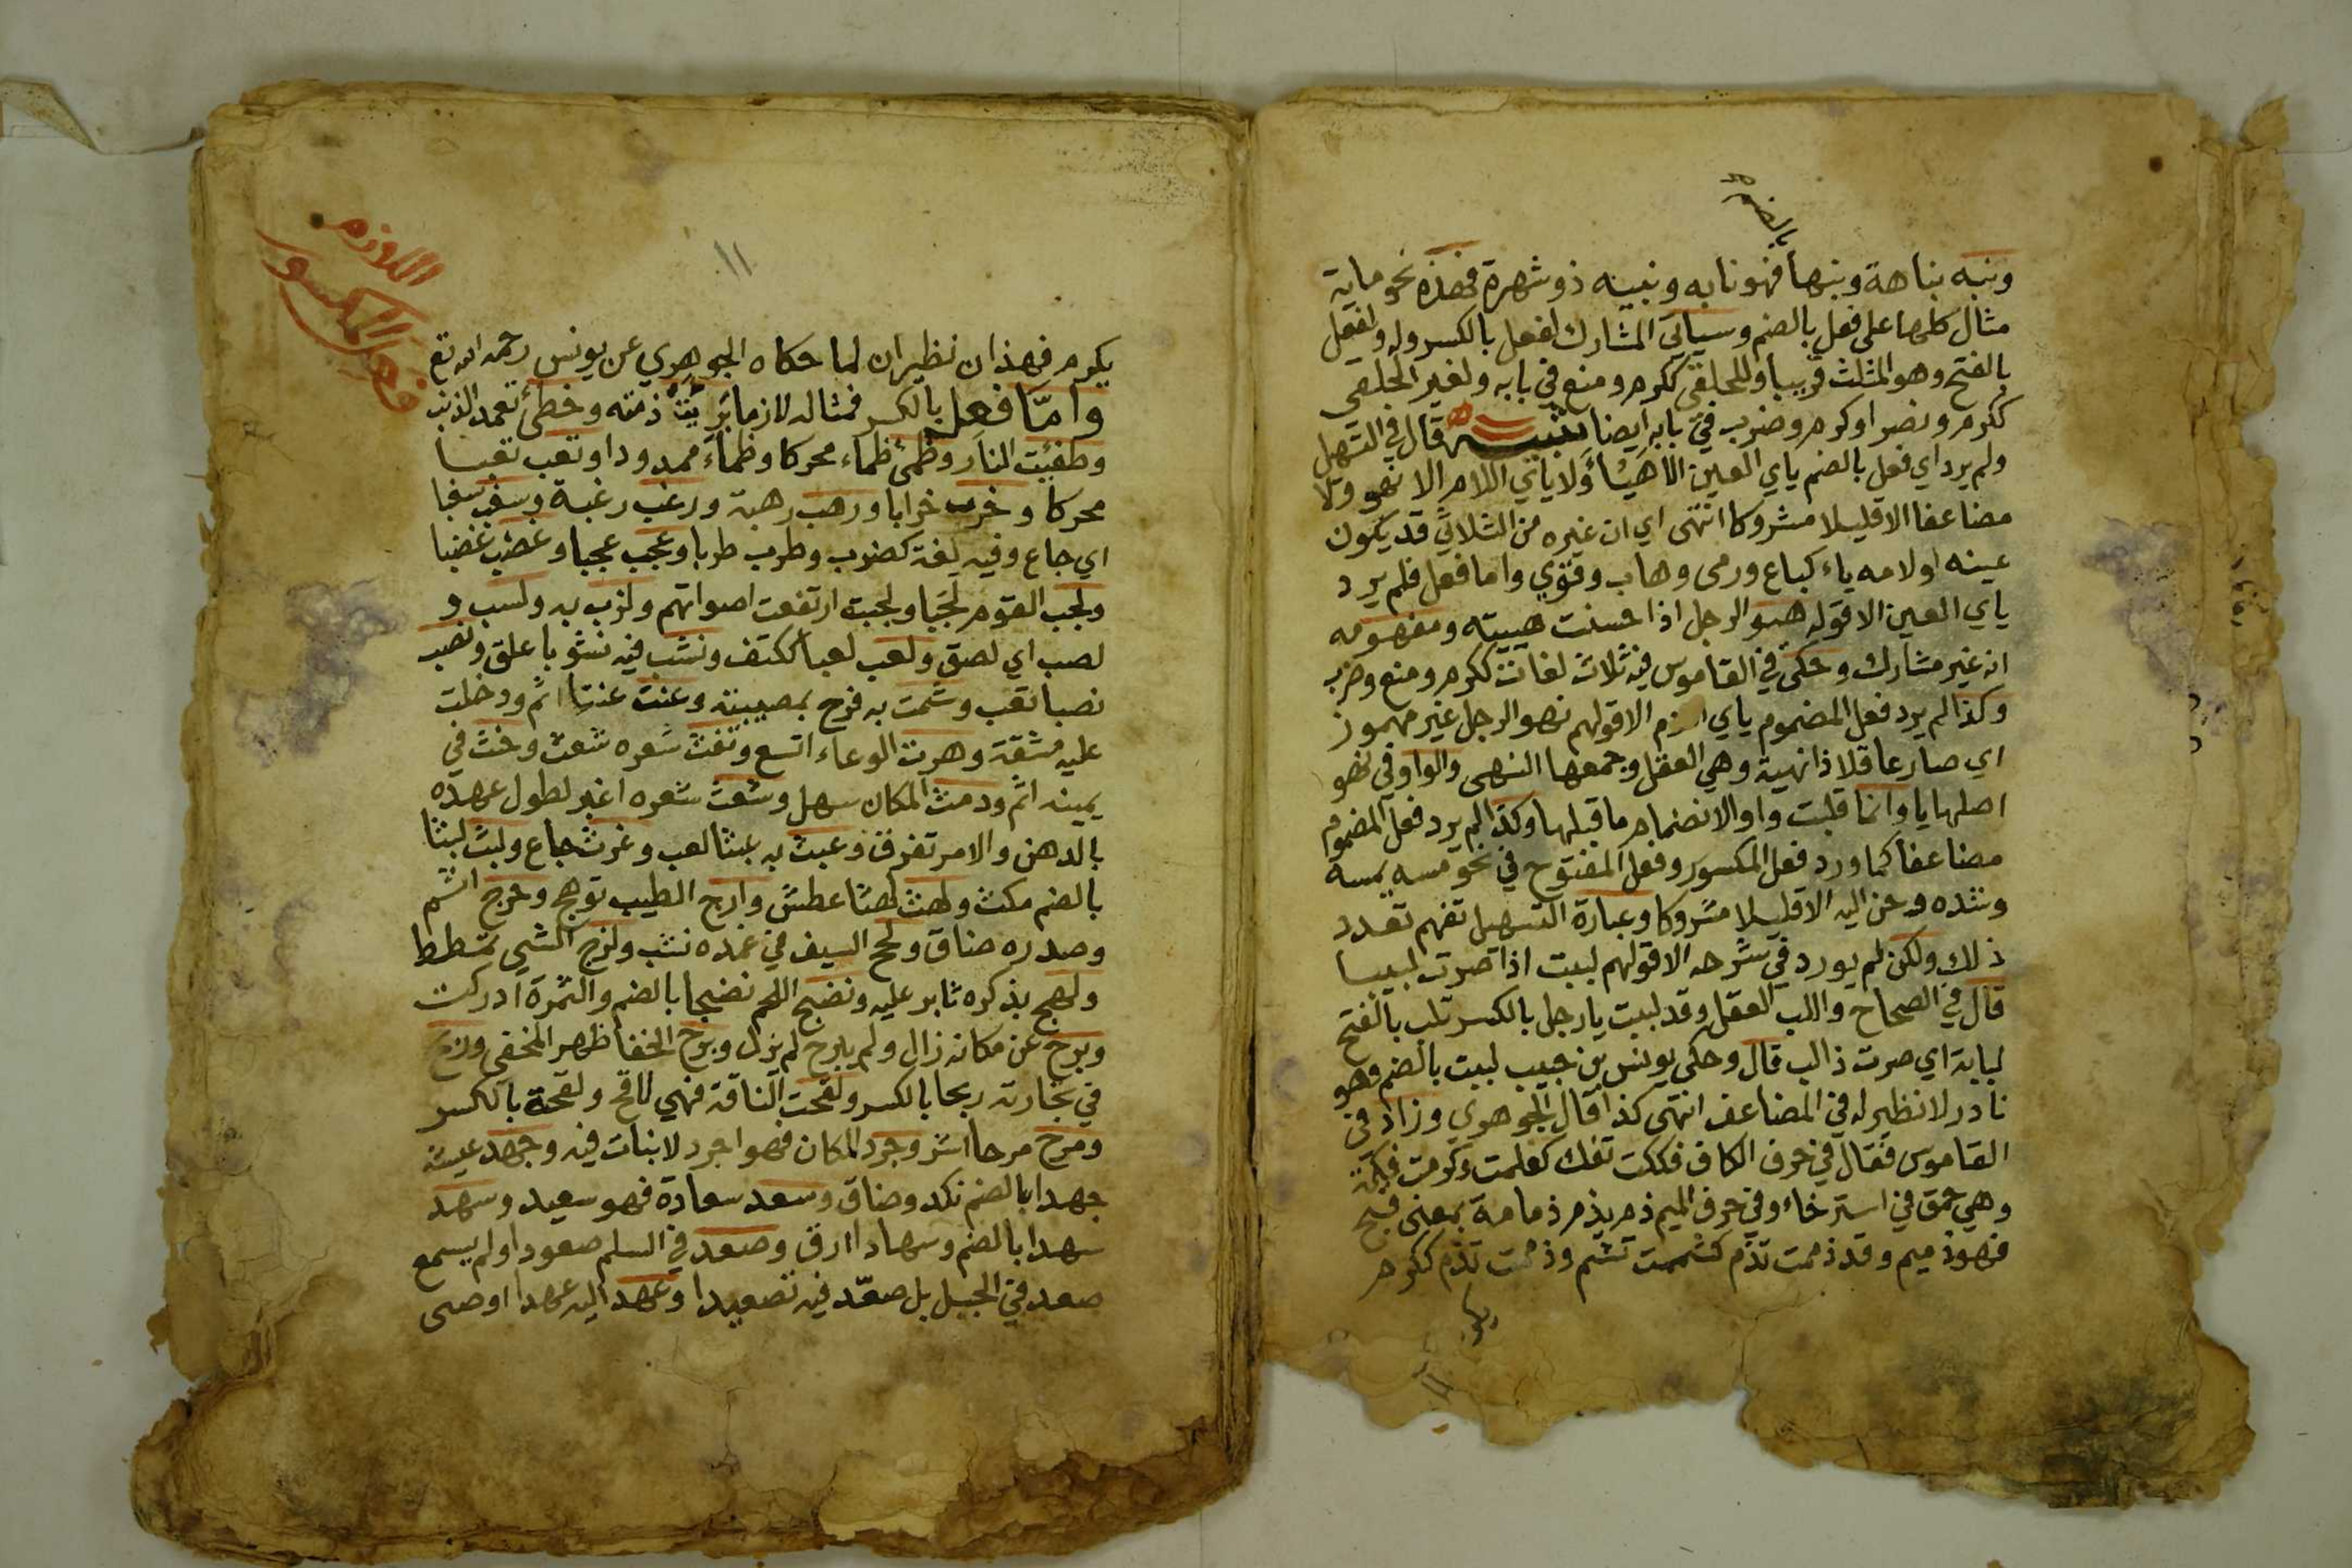 بالضم
ونبه نباهة ونبها فهو نابه ونبيه ذو شهرة فهذه نحو ماية
مثال كلها على فعل بالضم وسياتي المشارك لفعل بالكسر وله ولفعل
بالفتح وهو المثلث قريبا وللحلقي ككرم ومنع في بابه ولغير الحلقي
ككرم ونصر او كرم وضرب في بابه ايضا تنبيه قال في التسهيل
ولم يرد اي فعل بالضم ياي العين الا هيئا ولا ياي اللام الا نهو ولا
مضاعفا الا قليلا مشروكا انتهى اي ان غيره من الثلاثي قد يكون
عينه او لامه ياء كباع ورمى وهاب وقوي واما فعل فلم يرد
ياي العين الا قوله هيو الرجل اذا حسنت هييته ومفهومه
انه غير مشارك وحكى في القاموس فيه ثلاث لغات ككرم ومنع وضرب
وكذا لم يرد فعل المضموم ياي اللام الا قولهم نهو الرجل غير مهموز
اي صار عاقلا ذا نهية وهي العقل وجمعها النهى والواو في نهو
اصلها يا وانما قلبت واوا لانضمام ما قبلها وكذا لم يرد فعل المضموم
مضاعفا كما ورد فعل المكسور وفعل المفتوح في نحو مسه يمسه
وشده وحن اليه الا قليلا مشروكا وعبارة التسهيل تفهم تعدد
ذلك ولكن لم يورد في شرحه الا قولهم لببت اذا صرت لبيبا
قال في الصحاح واللب العقل وقد لببت يا رجل بالكسر تلب بالفتح
لبابة اي صرت ذا لب قال وحكى يونس بن حبيب لببت بالضم وهو
نادر لا نظير له في المضاعف انتهى كذا قال الجوهري وزاد في
القاموس فقال في حرف الكاف فككت تفك كعلمت وكرمت فكة
وهي حمق في استرخاء وفي حرف الميم ذم يذم ذمامة بمعنى قبح
فهو ذميم وقد ذممت تذم كشممت تشم وذممت تذم ككرم
يكرم
١١
اللازم
فعل المكسور
يكرم فهذان نظيران لما حكاه الجوهري عن يونس رحمه الله تع
واما فعل بالكسر فمثاله لازما برئت ذمته وخطئ تعمد الذنب
وطفئت النار وظمئ ظماء محركا وظماء ممدودا وتعب تعبا
محركا وخرب خرابا ورهب رهبة ورغب رغبة وسغب سغبا
اي جاع وفيه لغة كضرب وطرب طربا وعجب عجبا وغضب غضبا
ولجب القوم لجبا ولجبت ارتفعت اصواتهم ولزب به ولسب و
لصب اي لصق ولعب لعبا ككتف ونشب فيه نشوبا علق ونصب
نصبا تعب وشمت به فرح بمصيبته وعنت عنتا اثم ودخلت
عليه مشقة وهرت الوعاء اتسع وتفث شعره شعث وحنث في
يمينه اثم ودمث المكان سهل وشعث شعره اغبر لطول عهده
بالدهن والامر تفرق وعبث به عبثا لعب وغرث جاع ولبث لبثا
بالضم مكث ولهث لهثا عطش وارج الطيب توهج وحرج اثم
وصدره ضاق ولحج السيف في غمده نشب ولزج الشي تمطط
ولهج بذكره ثابر عليه ونضج اللحم نضجا بالضم والثمرة ادركت
وبرح عن مكانه زال ولم يبرح لم يزل وبرح الخفا ظهر المخفي وربح
في تجارته ربحا بالكسر ولقحت الناقة فهي لاقح ولقحة بالكسر
ومرح مرحا اشر وجرد المكان فهو اجرد لا نبات فيه وجهد عيشه
جهدا بالضم نكد وضاق وسعد سعادة فهو سعيد وسهد
سهدا بالضم وسهادا ارق وصعد في السلم صعودا ولم يسمع
صعد في الجبل بل صعّد فيه تصعيدا وعهد اليه عهدا اوصى